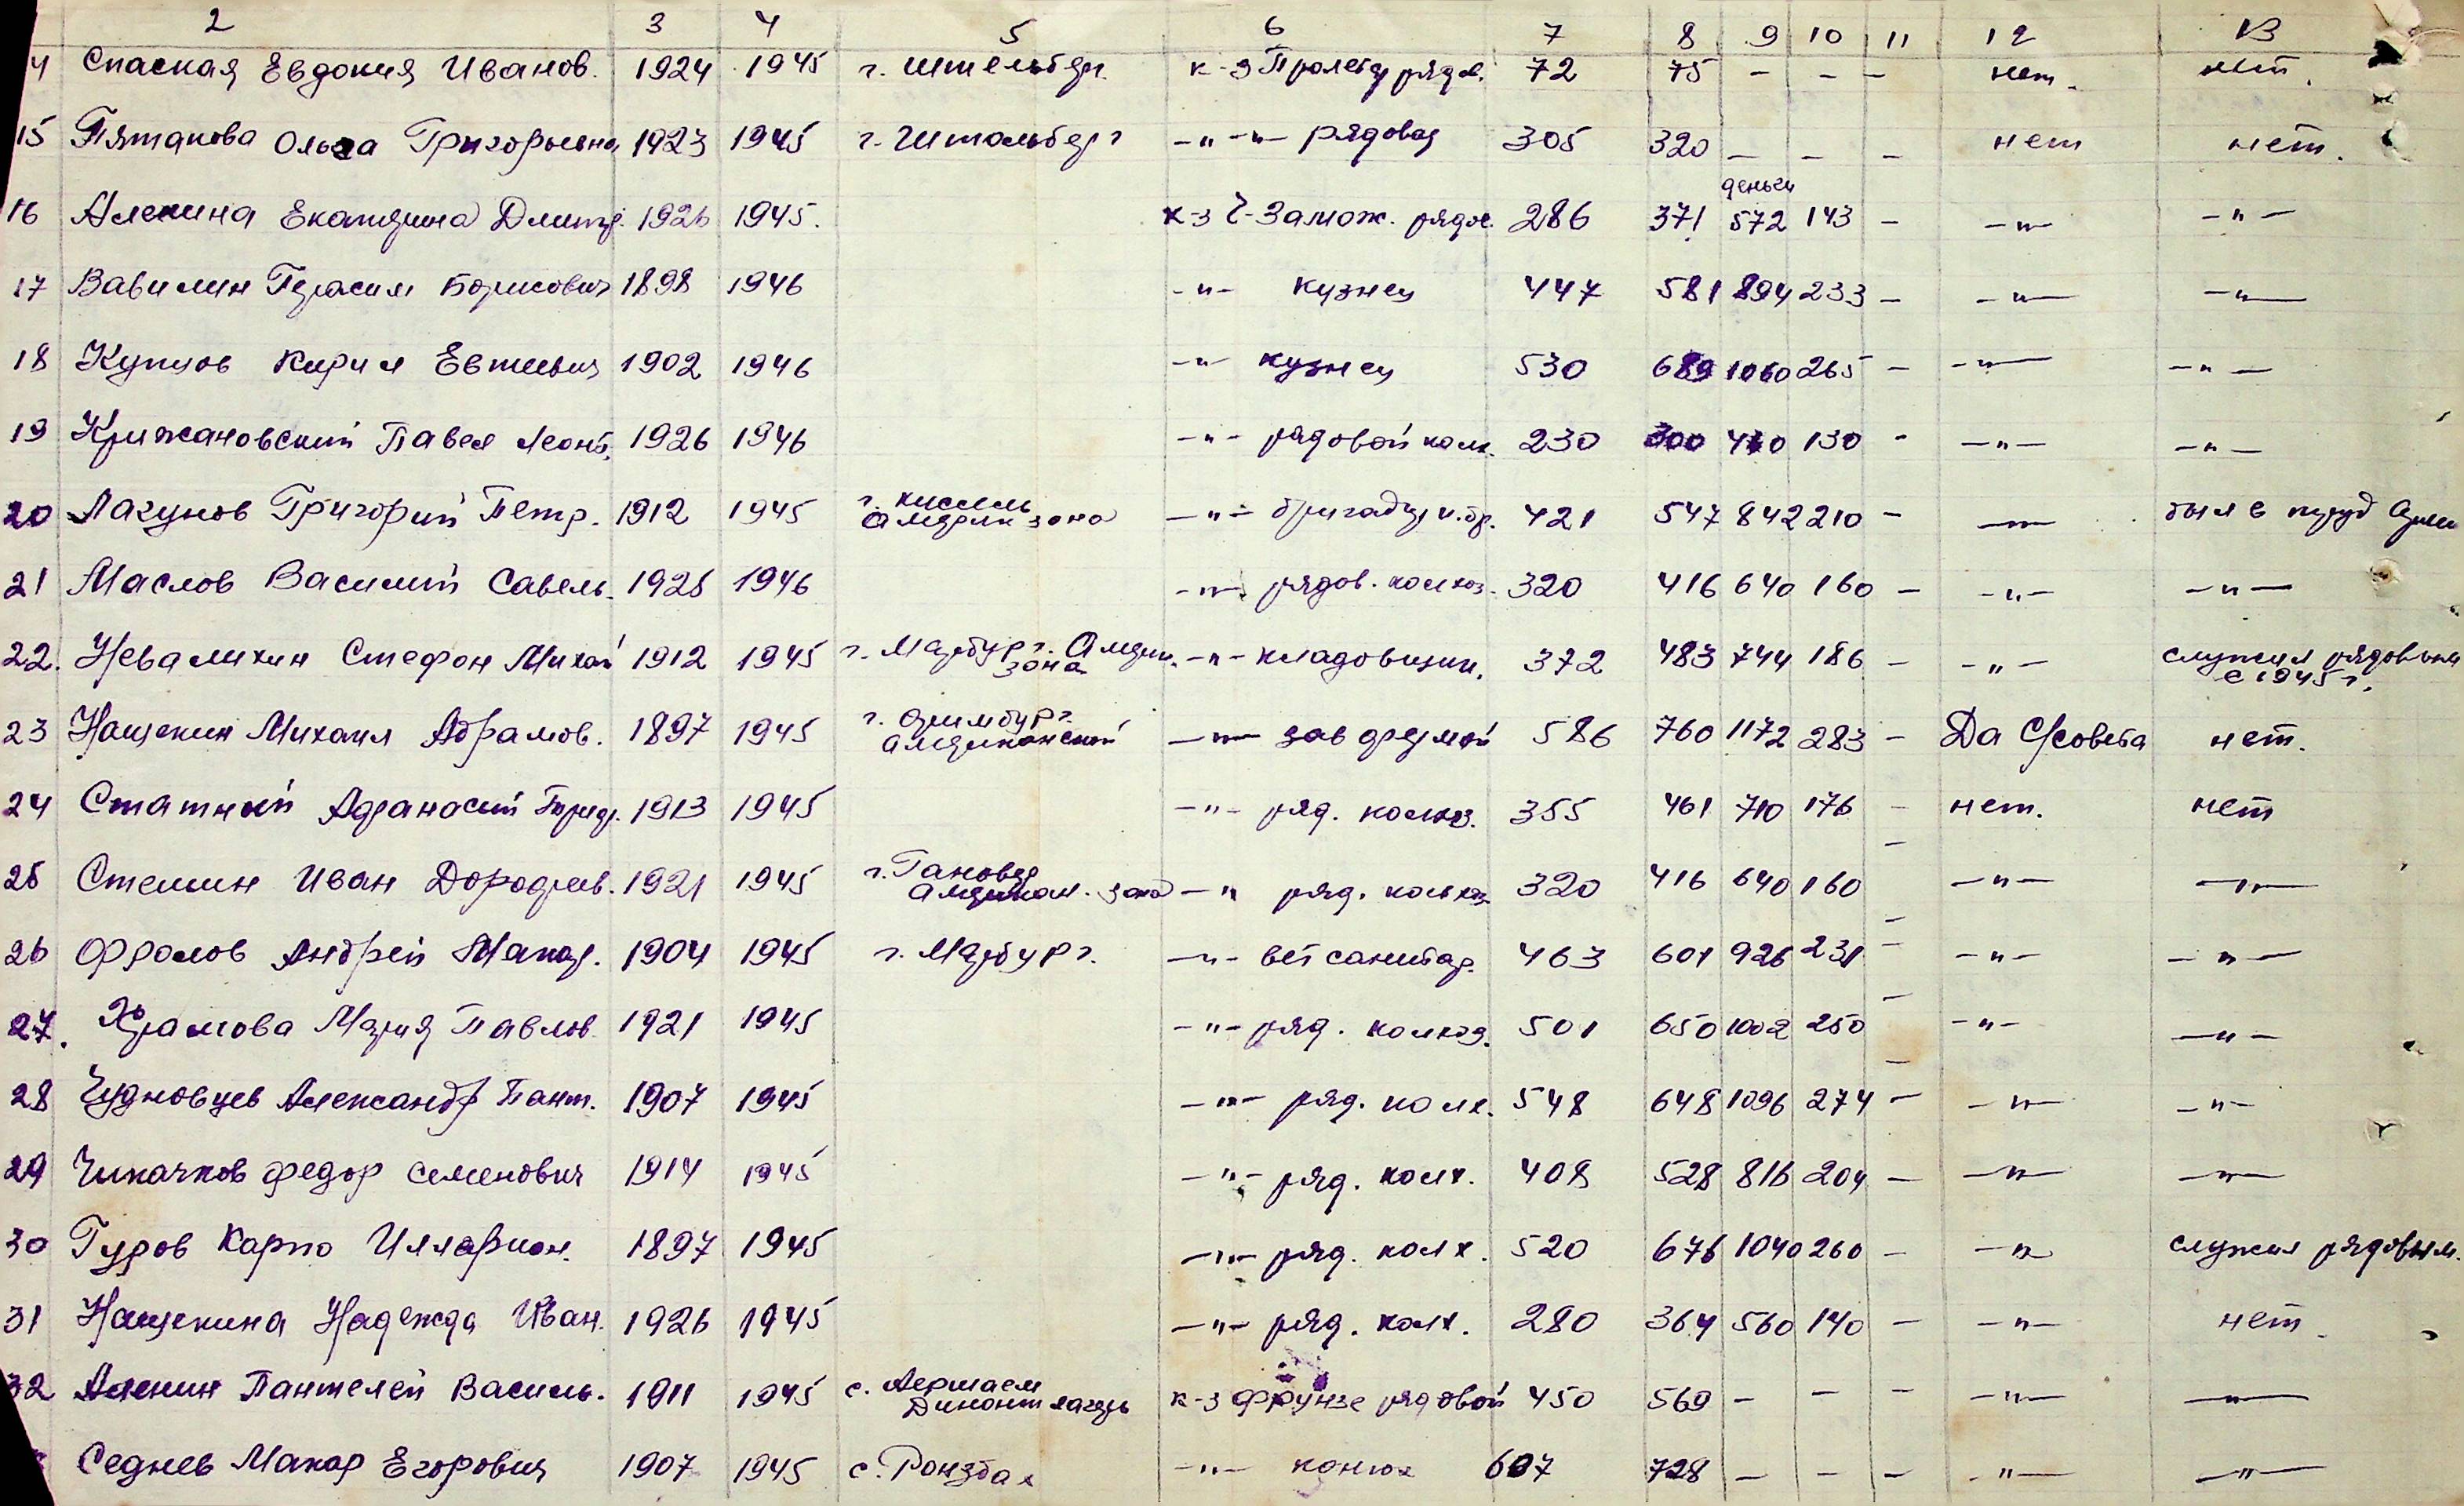 2 3 4 5 6 7 8 9 10 11 12 13
4 Спаская Евдокия Иванов. 1924 1945 г. Штельберг. к-з Пролетар рядов. 72 75 – – – нет. нет.
15 Пятакова Ольга Григорьевна 1923 1945 г. Штольберг –"–"– рядовая 305 320 – – – нет нет.
деньги
16 Алекина Екатерина Дмитр. 1926 1945. к-з Ч-Замож. рядов. 286 371 572 143 – –"– –"–
17 Вавилин Герасим Борисович 1898 1946 –"– кузнец 447 581 894 233 – –"– –"–
18 Купцов Кирил Евтиевич 1902 1946 –"– кузнец 530 689 1060 265 – –"– –"–
19 Крижановский Павел Леонт. 1926 1946 –"– рядовой колх. 230 300 430 130 - –"– –"–
20 Лагунов Григорий Петр. 1912 1945 г. Кисель –"– бригадир 421 547 842 210 – –"– был в
Америк зона
21 Маслов Василий Савель. 1925 1946 –"– рядов. колхоз. 320 416 640 160 – –"– –"–
22. Невалихин Стефон Михай 1912 1945 г. Марбург. Америк. –"– кладовщик. 372 483 744 186 – –"– служил рядовым
зона с 1945 г.
23 Нащекин Михаил Абрамов. 1897 1945 г. –"– зав фермой 586 760 1172 283 – Да С/совета нет.
американский
24 Статний Афанасий 1913 1945 –"– ряд. колхоз. 355 461 710 176 – нет. нет
25 Стешин Иван Дорофеев. 1921 1945 г. Гановер –"– ряд. колхоз. 320 416 640 160 – –"– –"–
Американ. зона
26 Фролов Андрей Макар. 1904 1945 г. Марбург. –"– вет санитар. 463 601 926 231 – –"– –"–
27. Храмова Мария Павлов 1921 1945 –"– ряд. колхоз. 501 650 1002 250 – –"– –"–
28 Чудновцев Александр Пант. 1907 1945 –"– ряд. колх. 548 648 1096 274 – –"– –"–
29 Чикачков Федор Семенович 1914 1945 –"– ряд. колх. 408 528 816 204 – –"– –"–
30 Гуров Карпо Илларион. 1897 1945 –"– ряд. колх. 520 676 1040 260 – –"– служил рядовым.
31 Нащекина Надежда Иван. 1926 1945 –"– ряд. колх. 280 364 560 140 – –"– нет.
32 Аленин Пантелей Василь. 1911 1945 с. к-з Фрунзе рядовой 450 569 – – – –"– –"–
лагерь
Седнев Макар Егорович 1907 1945 с. Ронзбах –"– конюх 607 728 – – – –"– –"–